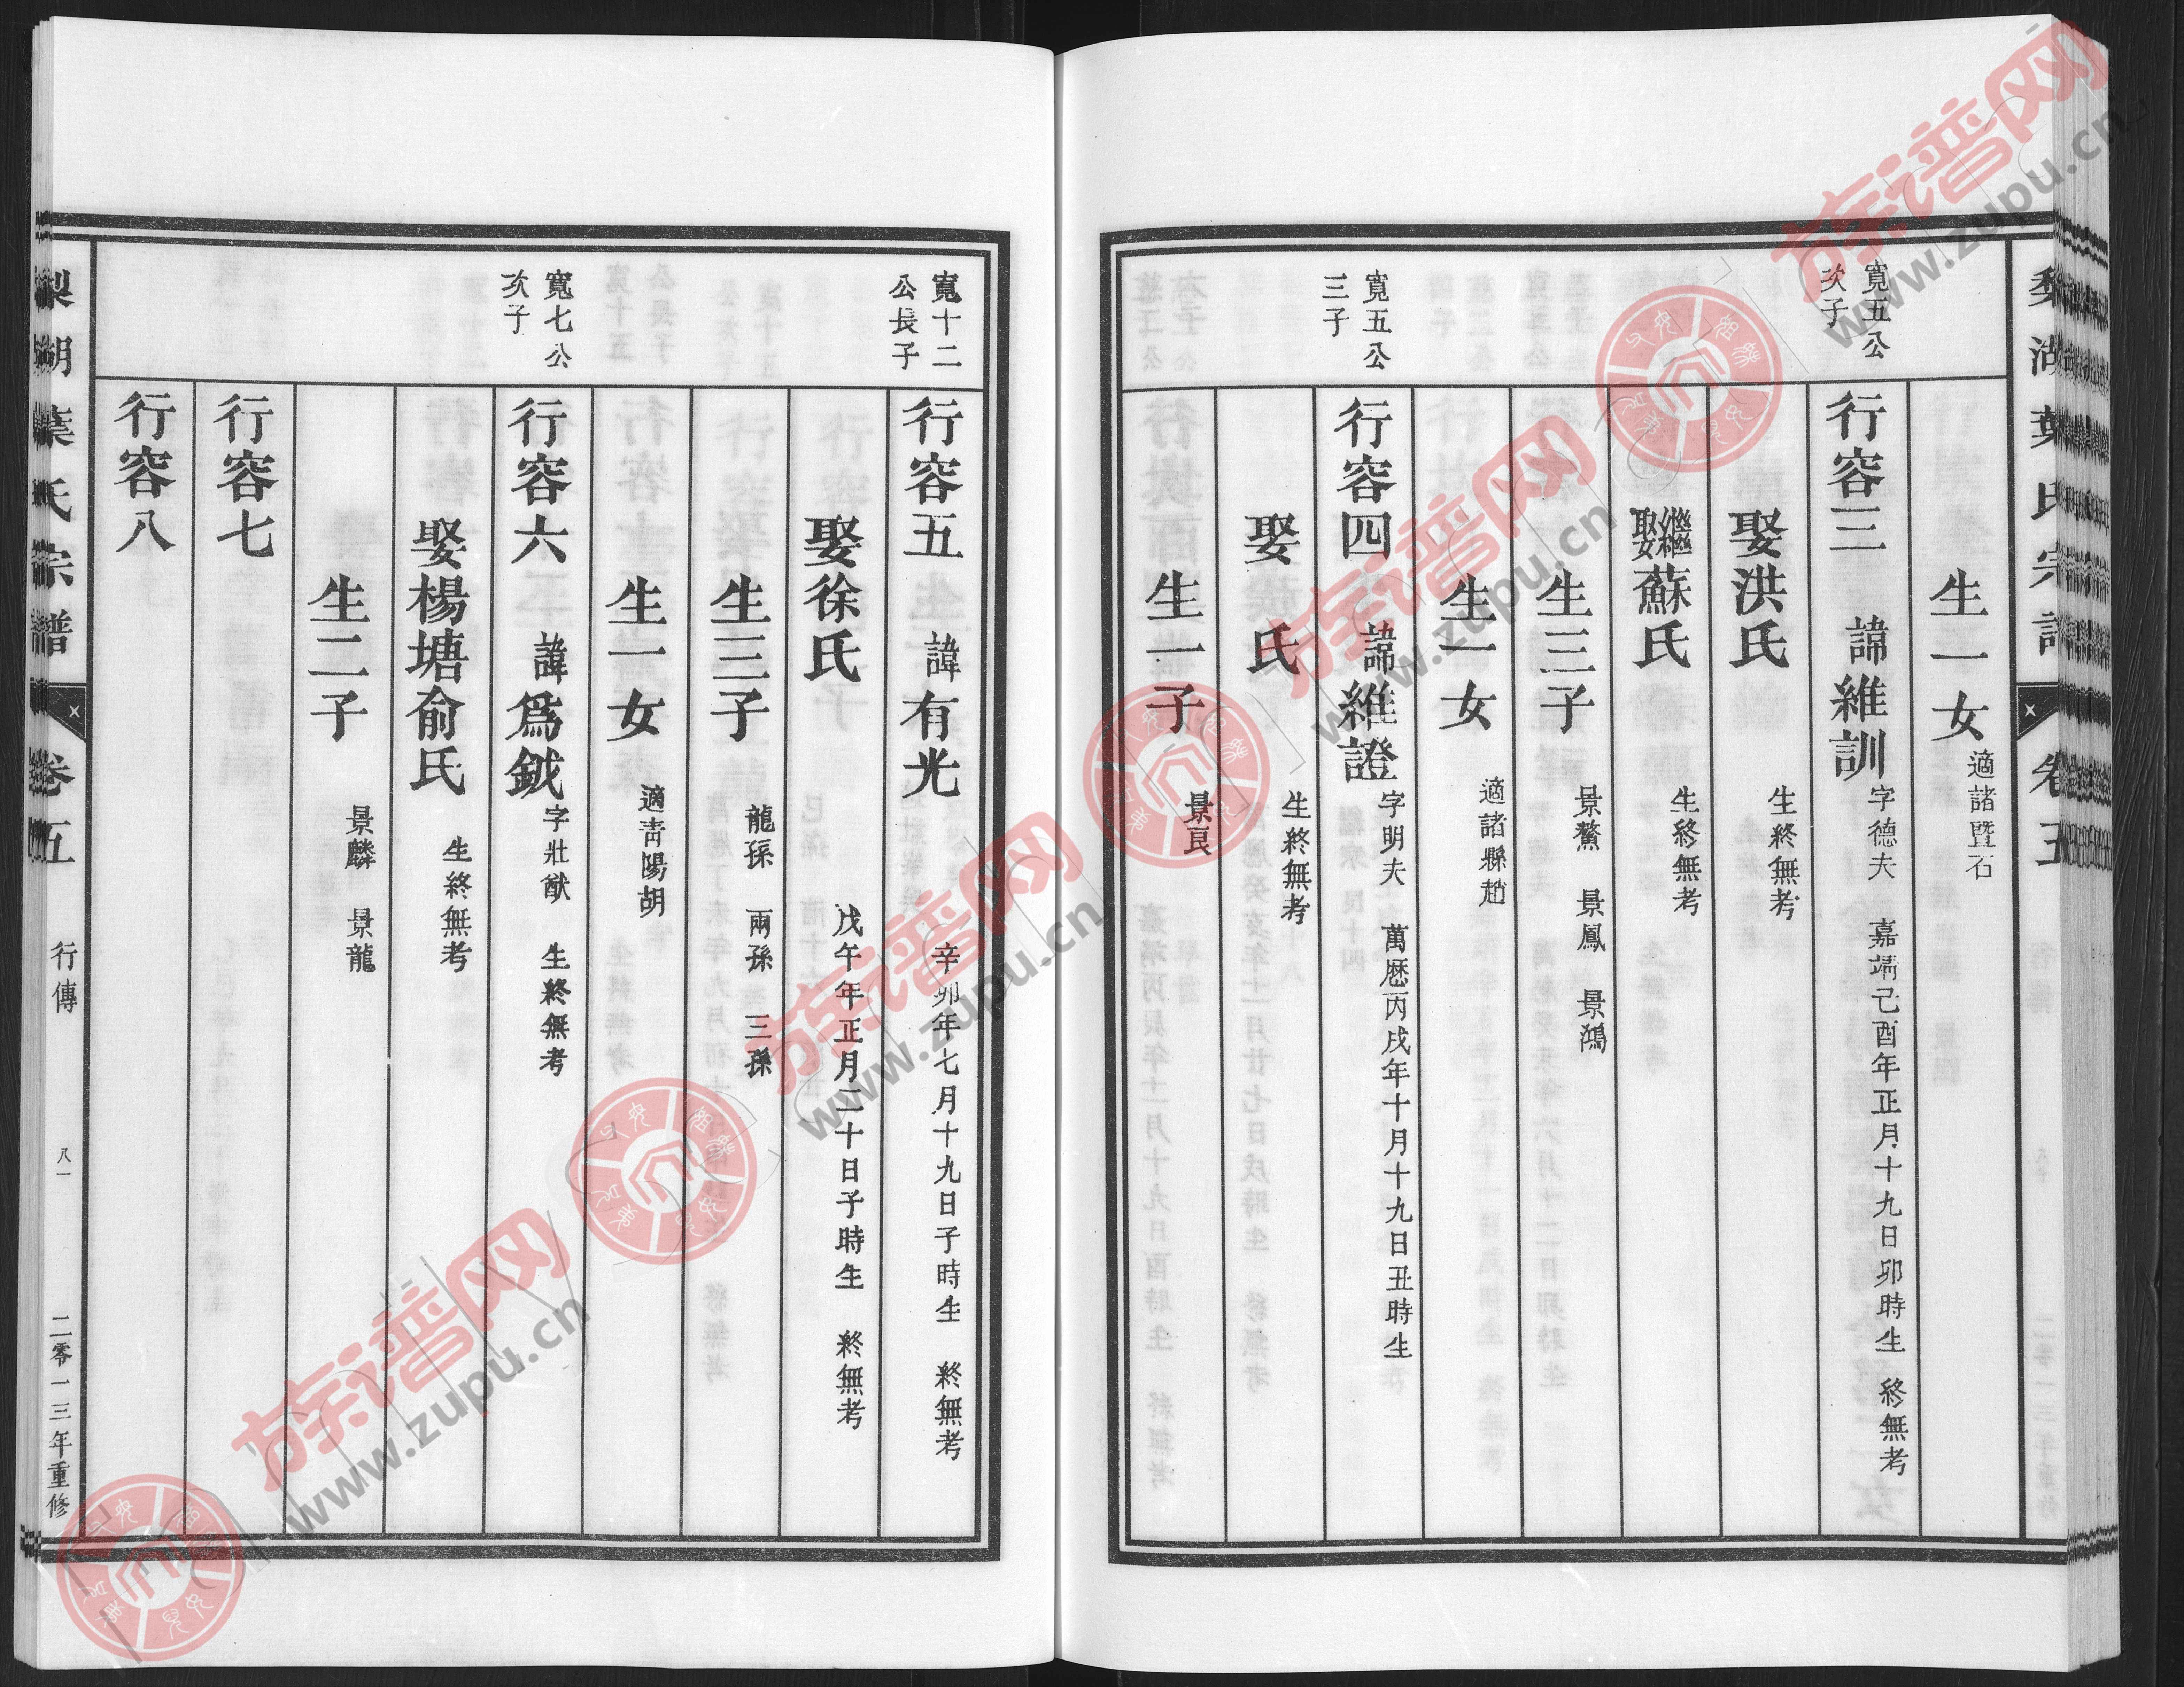 生一女 適諸暨石
寬五公
次子
行容三 諱維訓 字德夫 嘉靖己酉年正月十九日卯時生 終無考
娶洪氏 生終無考
繼娶蘇氏 生終無考
生三子 景鰲 景鳳 景鴻
生一女 適諸縣趙
寬五公
三子
行容四 諱維證 字明夫 萬曆丙戌年十月十九日丑時生
娶 氏 生終無考
生一子 景良
寬十二
公長子
行容五 諱有光 辛卯年七月十九日子時生 終無考
娶徐氏 戊午年正月二十日子時生 終無考
生三子 龍孫 兩孫 三孫
生一女 適青陽胡
寬七公
次子
行容六 諱爲鉞 字壯猷 生終無考
娶楊塘俞氏 生終無考
生二子 景麟 景龍
行容七
行容八
湖葉氏宗譜
卷五
行傳
八一
二零一三年重修
族谱网
www.zupu.cn
族谱网
www.zupu.cn
族谱网
www.zupu.cn
族谱网
www.zupu.cn